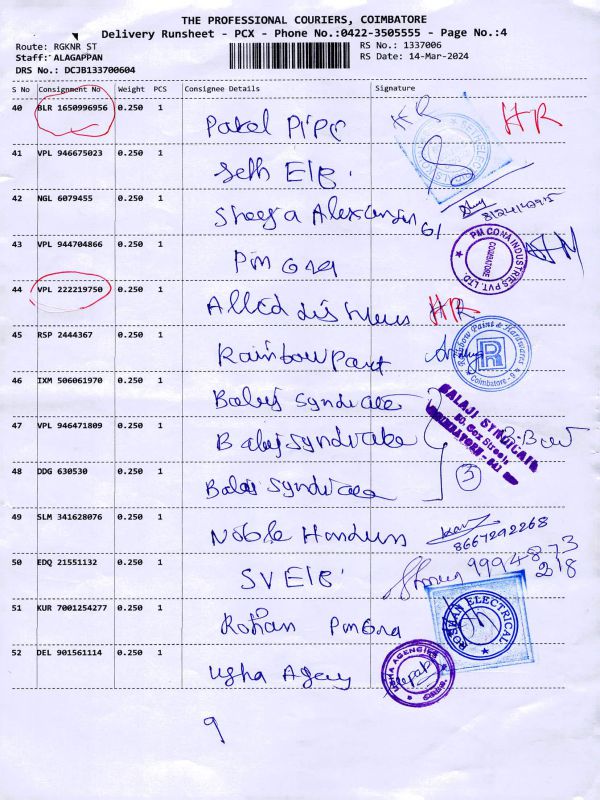 THE PROFESSIONAL COURIERS, COIMBATORE
Delivery Runsheet - PCX - Phone No.:0422-3505555 - Page No.:4
Route: RGKNR ST
RS No.: 1337006
Staff: ALAGAPPAN
RS Date: 14-Mar-2024
DRS No.: DCJB133700604
S No Consignment No Weight PCS Consignee Details Signature
40 BLR 1650996956 0.250 1 Patel Pipe HR HR
41 VPL 946675023 0.250 1 Seth Ele.
42 NGL 6079455 0.250 1 Sheeja 61 8124142915
43 VPL 944704866 0.250 1 Pm PM CONA INDUSTRIES PVT. LTD. COIMBATORE
44 VPL 222219750 0.250 1 Allied HR
45 RSP 2444367 0.250 1 Rainbow Paint Rainbow Paint & Hardwares R Coimbatore - 9
46 IXM 506061970 0.250 1 Balaji Syndicate
47 VPL 946471809 0.250 1 Balaji Syndicate BALAJI SYNDICATE
50, Cox Streets
COIMBATORE - 641
48 DDG 630530 0.250 1 Balaji Syndicate 3
49 SLM 341628076 0.250 1 Noble 8667292268
50 EDQ 21551132 0.250 1 SV Ele. 9994873
218
51 KUR 7001254277 0.250 1 Rohan ROSHAN ELECTRICAL
52 DEL 901561114 0.250 1 Usha Agency USHA AGENCIES
9